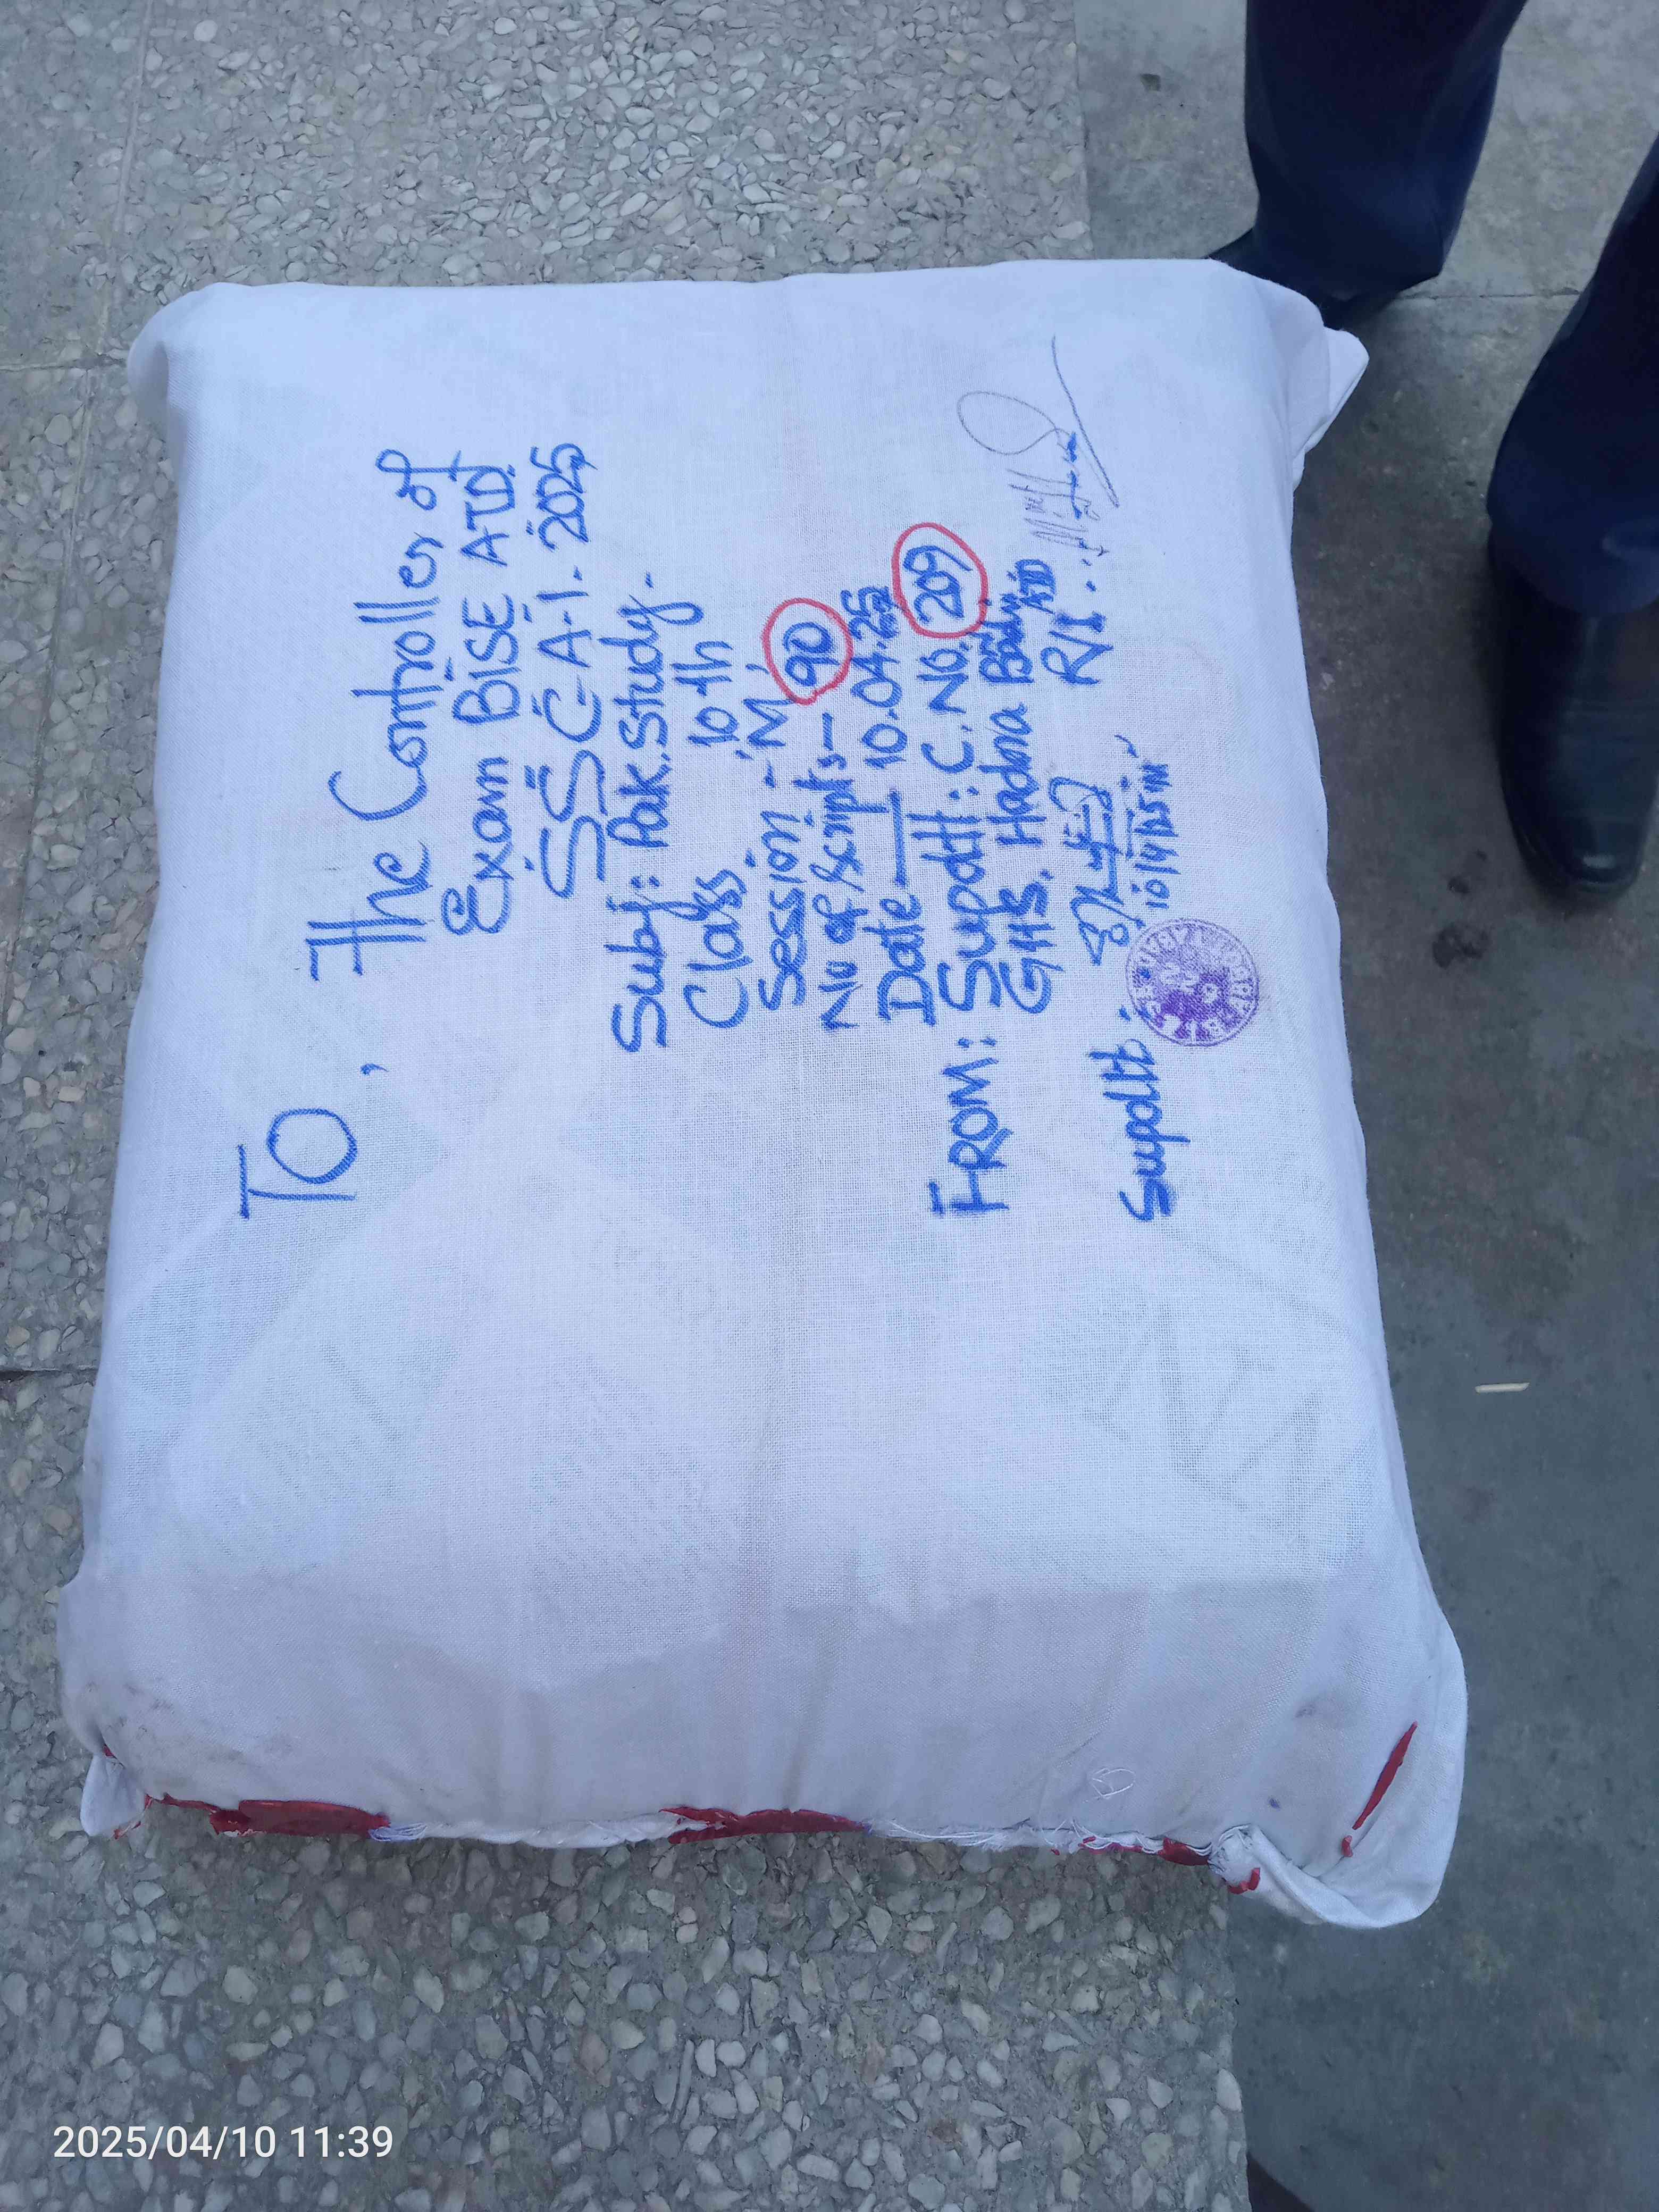 To,
The Controller of
Exam BISE ATD.
SSC-A-I-2025
Subj: Pak.Study.
Class 10th
Session - 'M'
No of Scripts — 90
Date — 10.04.25
FROM: Supdtt: C.No. 209
GHS. Hadora ATD
R/I.
Supdtt:
10/4/25
2025/04/10 11:39